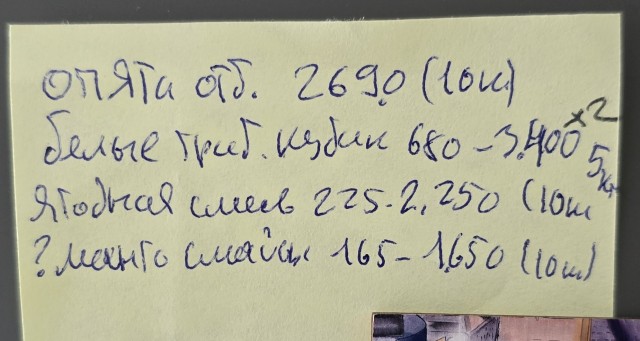 опята отб. 2690 (10кг)
белые гриб. кубик 680 - 3.400 x2 5кг
Ягодная смесь 225 - 2.250 (10кг
? манго слайсы 165 - 1.650 (10кг)